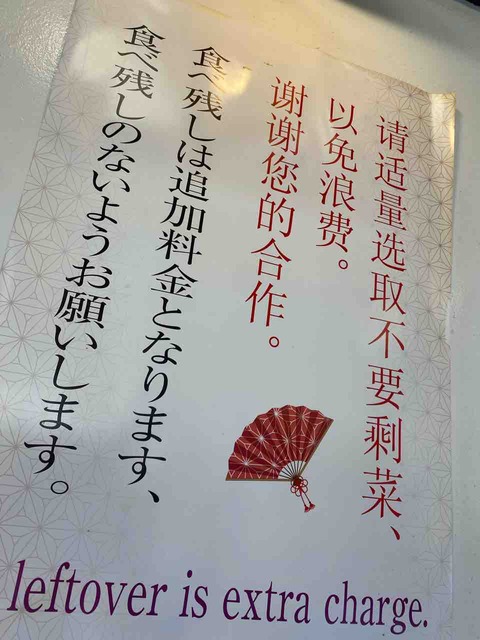 请适量选取不要剩菜、
以免浪费。
谢谢您的合作。
食べ残しは追加料金となります、
食べ残しのないようお願いします。
leftover is extra charge.